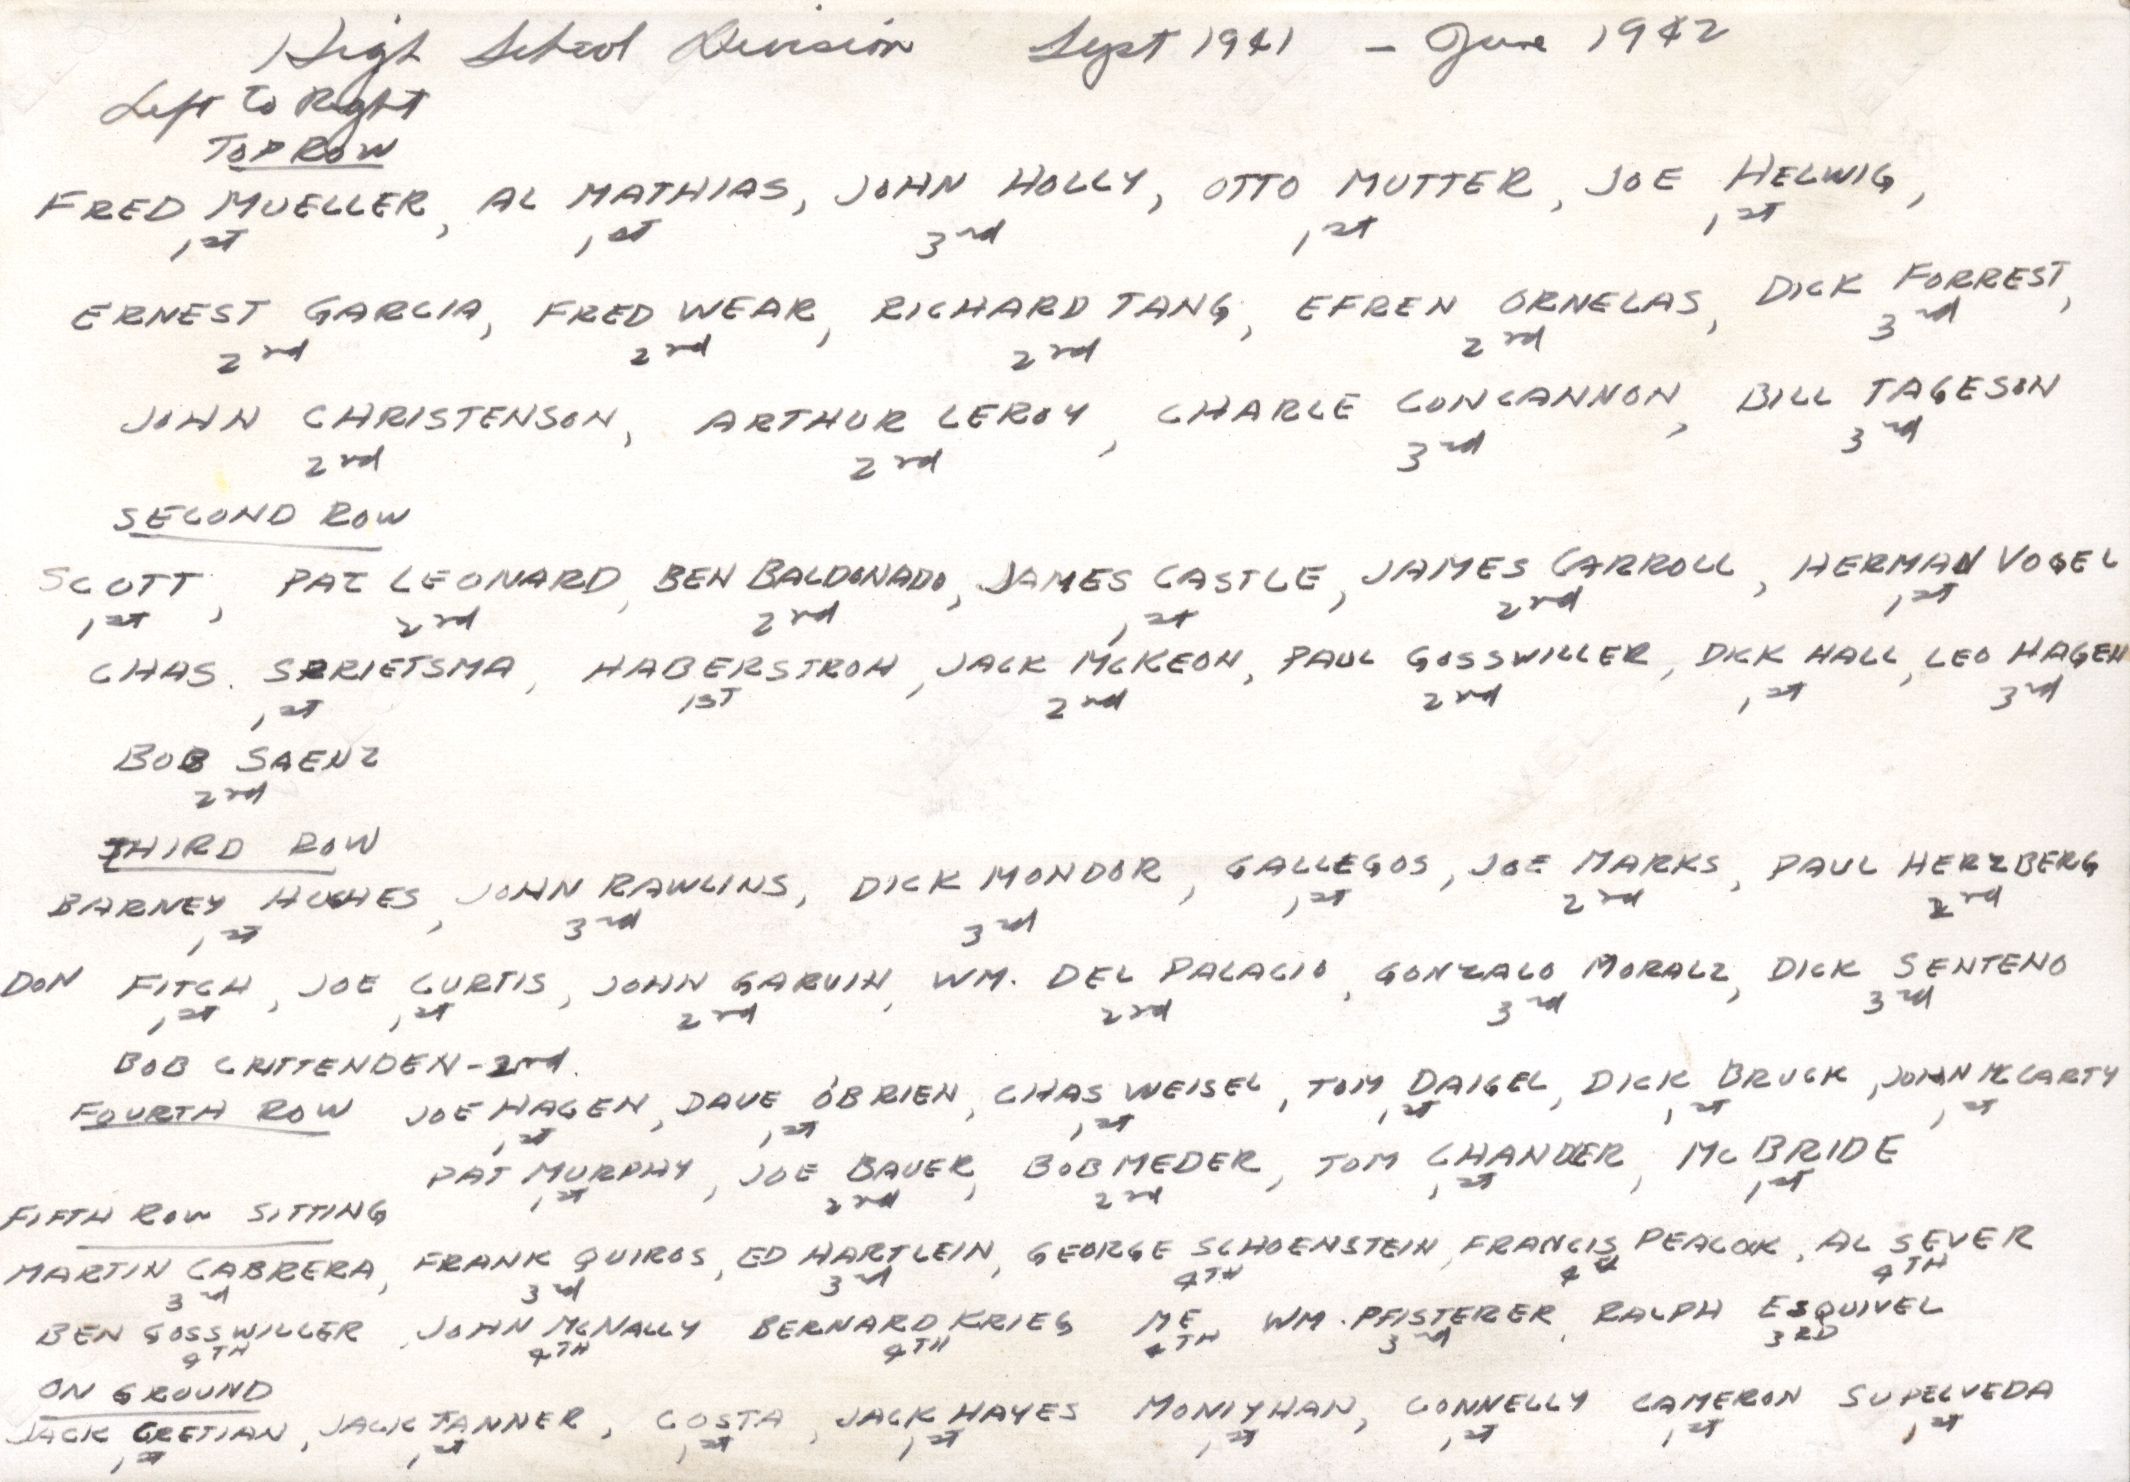 High School Division Sept 1941 - June 1942
Left To Right
TOP ROW
FRED MUELLER, AL MATHIAS, JOHN HOLLY, OTTO MUTTER, JOE HELWIG,
1st 1st 3rd 1st 1st
ERNEST GARCIA, FRED WEAR, RICHARD TANG, EFREN ORNELAS, DICK FORREST,
2rd 2rd 2rd 2rd 3rd
JOHN CHRISTENSON, ARTHUR LEROY, CHARLE CONCANNON, BILL TAGESON
2rd 2rd 3rd 3rd
SECOND ROW
SCOTT, PAT LEONARD, BEN BALDONADO, JAMES CASTLE, JAMES CARROLL, HERMAN VOGEL
1st 2rd 2rd 1st 2rd 1st
CHAS. SPRIETSMA, HABERSTROH, JACK McKEON, PAUL GOSSWILLER, DICK HALL, LEO HAGEN
1st 1ST 2rd 2rd 1st 3rd
BOB SAENZ
2rd
THIRD ROW
BARNEY HUGHES, JOHN RAWLINS, DICK MONDOR, GALLEGOS, JOE MARKS, PAUL HERZBERG
1st 3rd 3rd 1st 2rd 2rd
DON FITCH, JOE CURTIS, JOHN GARVIN, WM. DEL PALACIO, GONZALO MORALZ, DICK SENTENO
1st 1st 2rd 2rd 3rd 3rd
BOB CRITTENDEN - 2nd.
FOURTH ROW JOE HAGEN, DAVE O'BRIEN, CHAS WEISEL, TOM DAIGEL, DICK BRUCK, JOHN McCARTY
1st 1st 1st 1st 1st 1st
PAT MURPHY, JOE BAUER, BOB MEDER, TOM CHANDLER, McBRIDE
1st 2rd 2rd 1st 1st
FIFTH ROW SITTING
MARTIN CABRERA, FRANK QUIROS, ED HARTLEIN, GEORGE SCHOENSTEIN, FRANCIS PEACOCK, AL SEVER
3rd 3rd 3rd 4TH 4th 4TH
BEN GOSSWILLER, JOHN McNALLY BERNARD KRIEG ME WM. PFISTERER, RALPH ESQUIVEL
4TH 4TH 4TH 4TH 3rd 3RD
ON GROUND
JACK CRETIAN, JACK TANNER, COSTA, JACK HAYES MONIYHAN, CONNELLY CAMERON SUPELVEDA
1st 1st 1st 1st 1st 1st 1st 1st